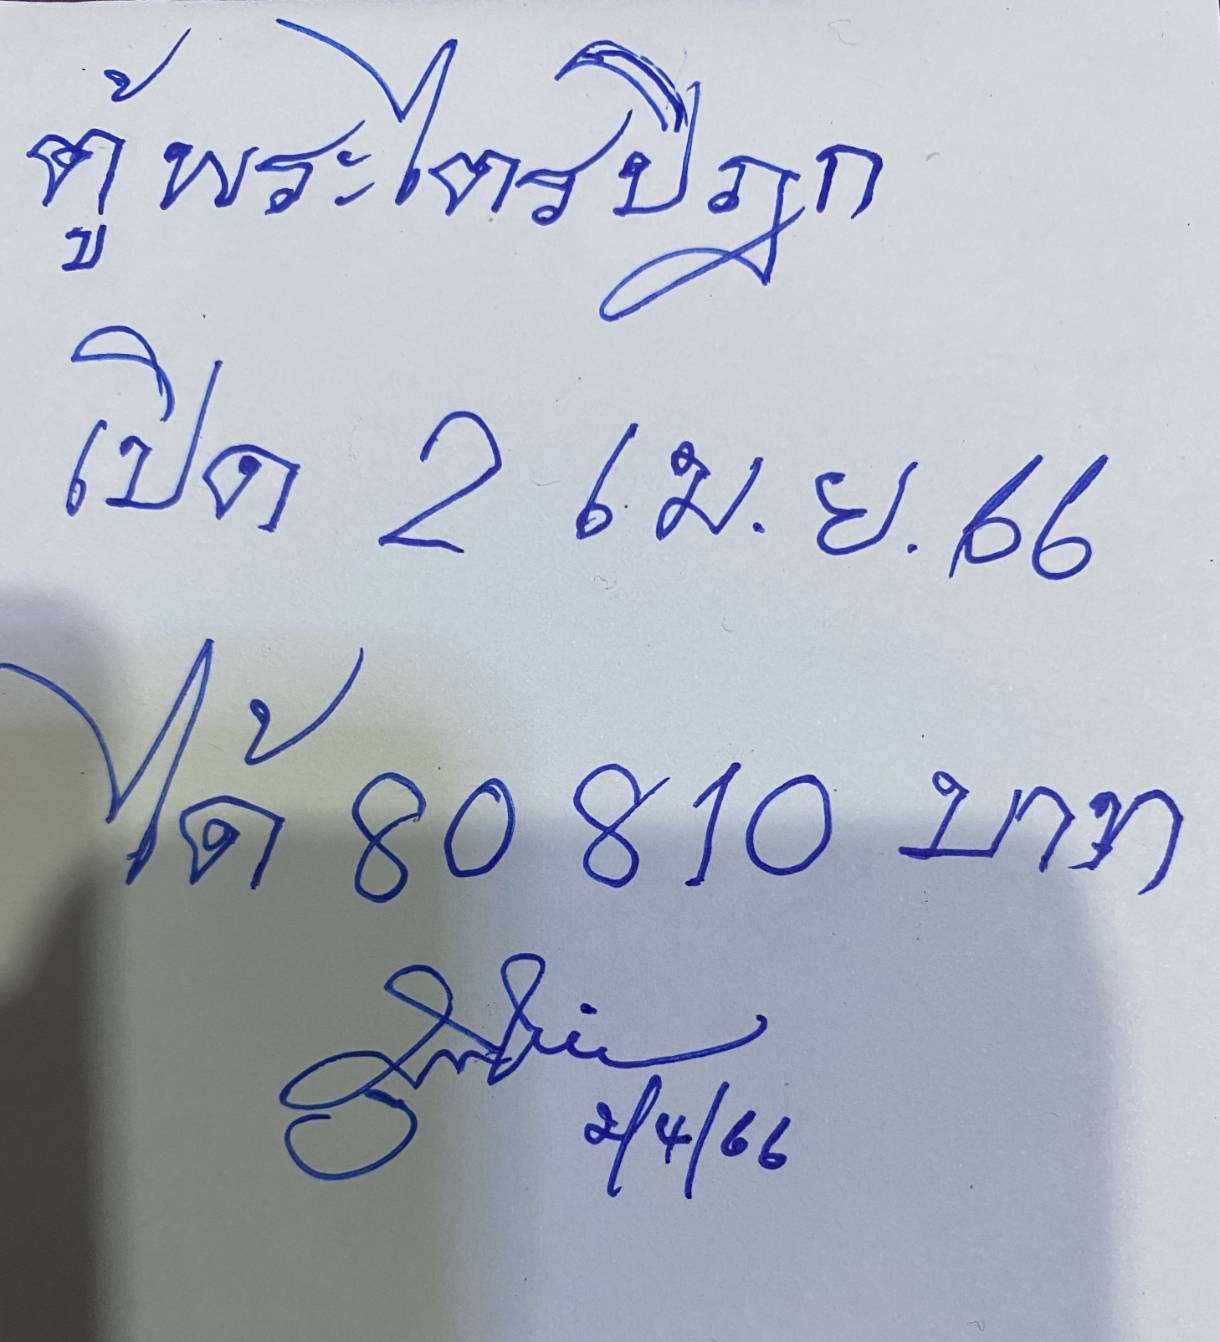 ตู้พระไตรปิฎก
เปิด 2 เม.ย.66
ได้ 80 810 บาท
2/4/66